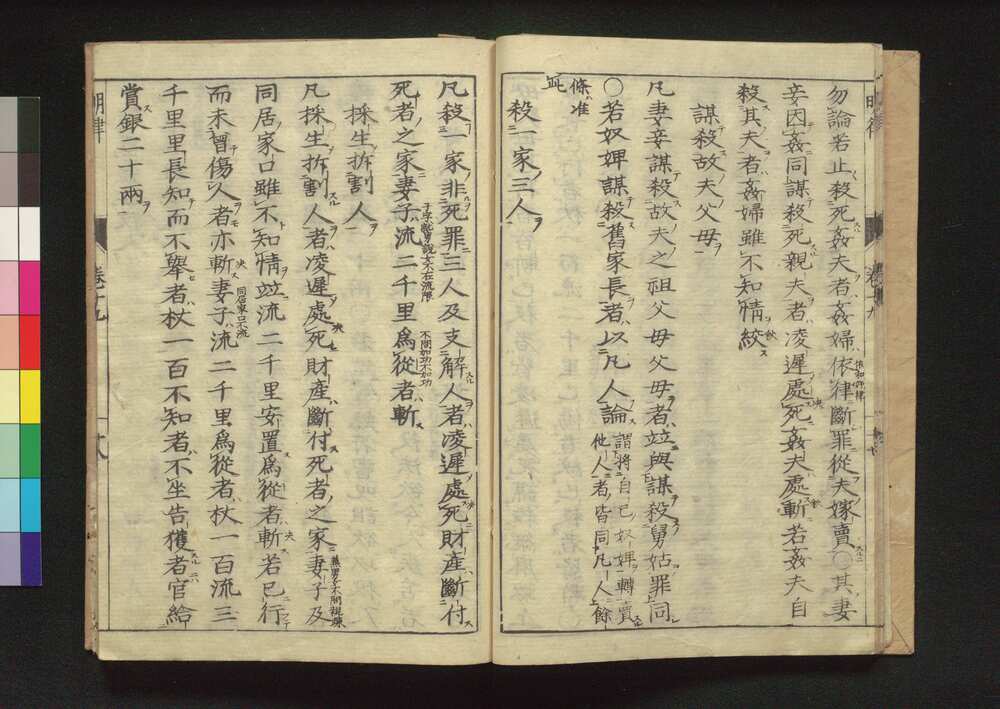 勿論若止殺死姦夫者姦婦依律斷罪從夫嫁賣〇其妻
妾因姦同謀殺死親夫者凌遲處死姦夫處斬若姦夫自
殺其夫者姦婦雖不知情絞
謀殺故夫父母
凡妻妾謀殺故夫之祖父母父母者竝與謀殺舅姑罪同
〇若奴婢謀殺舊家長者以凡人論謂將自己奴婢轉賣他人者皆同凡人餘
條准
此
殺一家三人
凡殺一家非死罪三人及支解人者凌遲處死財產斷付
死者之家妻子流二千里為從者斬
不問加功不加功
採生拆割人
凡採生拆割人者凌遲處死財產斷付死者之家妻子及
同居家口雖不知情竝流二千里安置為從者斬若已行
而未曾傷人者亦斬妻子流二千里為從者杖一百流三
同居家口不流
千里里長知而不舉者杖一百不知者不坐告獲者官給
賞銀二十兩
明律
卷十九